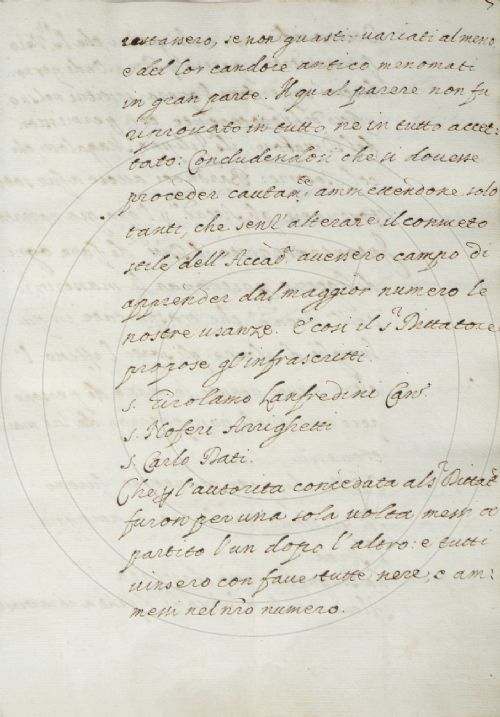 restassero, se non guasti, variati almeno
e del lor candore antico menomati
in gran parte. Il qual parere non fu
riprovato in tutto, ne in tutto accet:
tato: Concludendosi che si dovesse
proceder cautamte, ammettendone solo
tanti, che senz' alterare il consueto
stile dell' Accad.a avessero campo di
apprender dal maggior numero le
nostre usanze. E così il s.r Dittatore
propose gl' infrascritti.
s. Girolamo Lanfredini Can.co
s. Noferi Arrighetti
s. Carlo Dati.
Che p l'autorità conceduta al s.r Dittat.e
furon per una sola volta messi a
partito l'un dopo l'altro: e tutti
vinsero con fave tutte nere, e am:
messi nel nro numero.